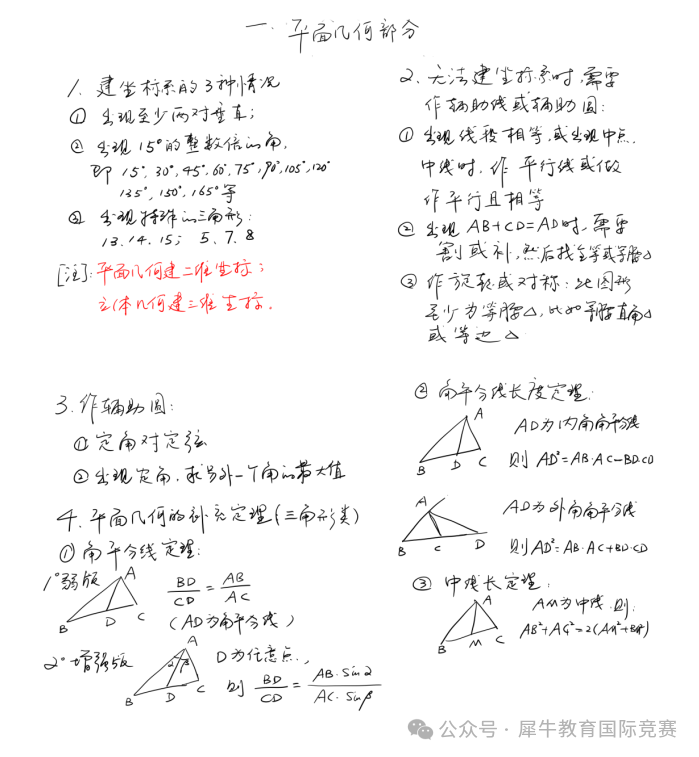 一. 平面几何部分
1. 建坐标系的3种情况
① 出现至少两对垂直;
② 出现15°的整数倍的角,
即 15°, 30°, 45°, 60°, 75°, 90°, 105°, 120°
135°, 150°, 165° 等
③ 出现特殊的三角形:
13. 14. 15; 5. 7. 8
[注]: 平面几何建二维坐标;
立体几何建三维坐标.
2. 无法建坐标系时, 需要
作辅助线或辅助圆:
① 出现线段相等, 或出现中点,
中线时, 作平行线或做
作平行且相等
② 出现 AB+CD=AD时, 需要
割或补, 然后找全等或等腰△
③ 作旋转或对称: 此图形
至少为等腰△, 比如等腰直角△
或等边△
3. 作辅助圆:
① 定角对定弦
② 出现定角, 求另外一个角的最大值
4. 平面几何的补充定理(三角形类)
① 角平分线定理:
1° 弱版
A
B
D
C
BD/CD = AB/AC
(AD为角平分线)
2° 增强版
A
α
β
B
D
C
D为任意点,
则 BD/CD = AB·sinα/AC·sinβ
② 角平分线长度定理:
A
B
D
C
AD为内角角平分线
则 AD²=AB·AC-BD·CD
A
B
C
D
AD为外角角平分线
则AD²=AB·AC+BD·CD
③ 中线长定理:
A
B
M
C
AM为中线, 则:
AB²+AC²=2(AM²+BM²)
公众号·犀牛教育国际竞赛